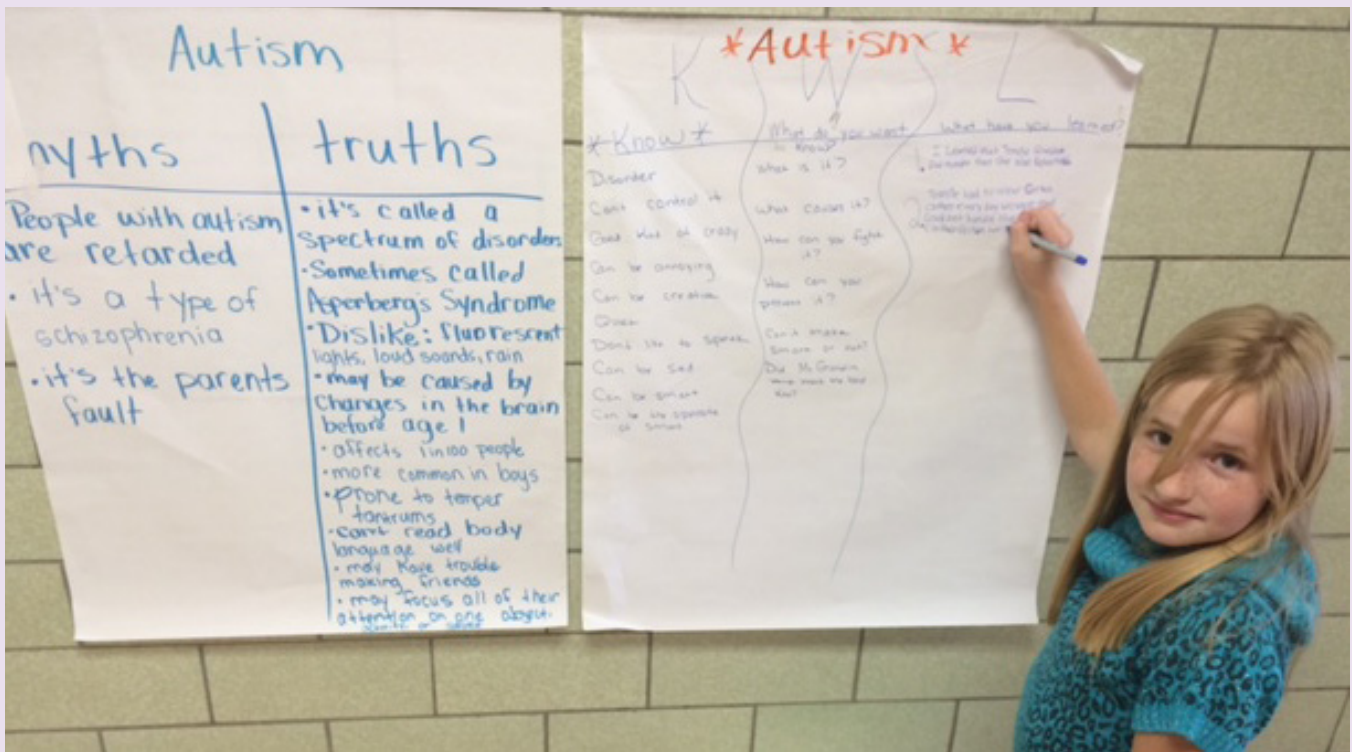 Autism
myths
truths
People with autism
are retarded
• it's a type of
schizophrenia
• it's the parents
fault
• it's called a
spectrum of disorders
• Sometimes called
Aperberg's Syndrome
• Dislike: fluorescent
lights, loud sounds, rain
• may be caused by
changes in the brain
before age 1
• affects 1 in 100 people
• more common in boys
• prone to temper
tantrums
• can't read body
language well
• may have trouble
making friends
• may focus all of their
attention on one object.
*Autism*
K W L
*Know*
Disorder
Can't control it
kind of crazy
Can be annoying
Can be creative
Quiet
Don't like to speak
Can be sad
Can be smart
Can be the opposite
of smart
What do you want
to know?
What is it?
What causes it?
How can you fight
it?
How can you
prevent it?
smart or not?
Did
What have you learned?
I learned that Temple